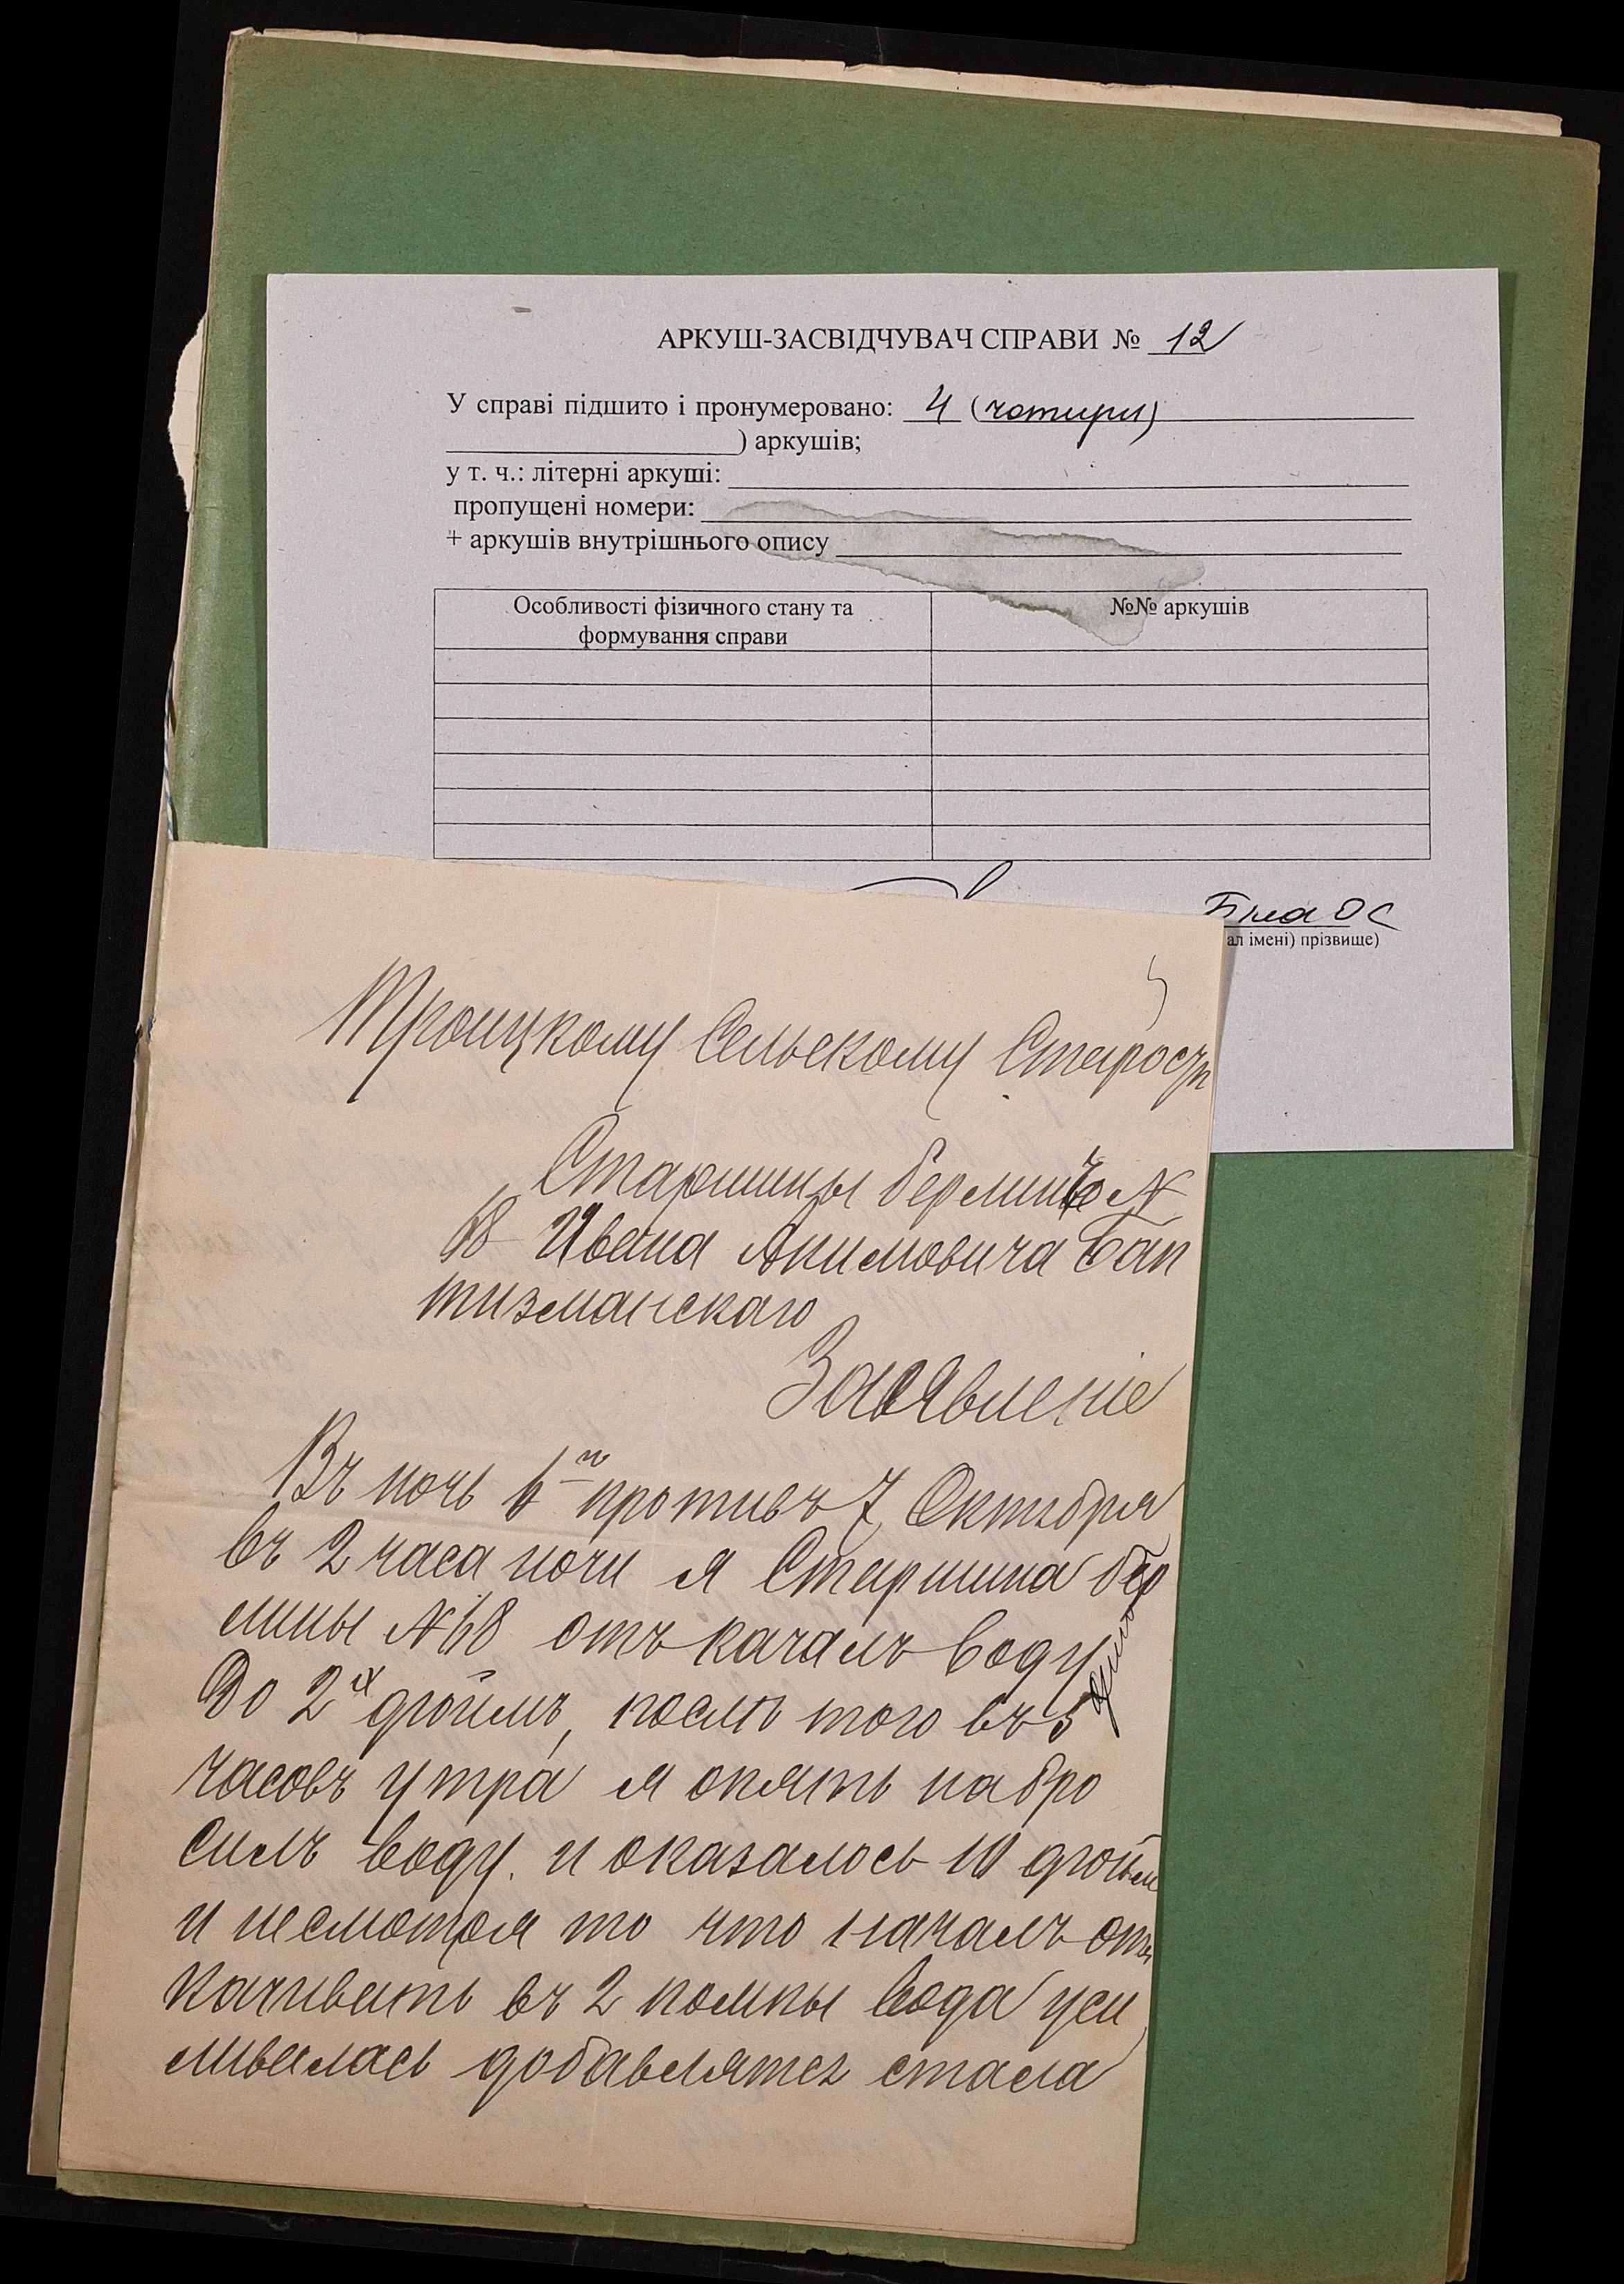 АРКУШ-ЗАСВІДЧУВАЧ СПРАВИ № 12
У справі підшито і пронумеровано: 4 (чотири)
) аркушів;
у т. ч.: літерні аркуші:
пропущені номери:
+ аркушів внутрішнього опису
Особливості фізичного стану та формування справи
№№ аркушів
Біла ОС
ал імені) прізвище)
Троицкому Сельскому Старостѣ
Старшины берлины №
68 Ивана Акимовича Бап
тизманскаго
Заявленіе
Въ ночь 6 противъ 7 Октября
въ 2 часа ночи я Старшина бер
лины №68 отъкачалъ воду
До 2х дюймъ, послѣ того въ 5
часовъ утра я опять на бро
силъ воду. и оказалось 10 дюйм
и несмотря то что началъ отъ
качивать въ 2 помпы вода уси
ливалась добавлятся стала